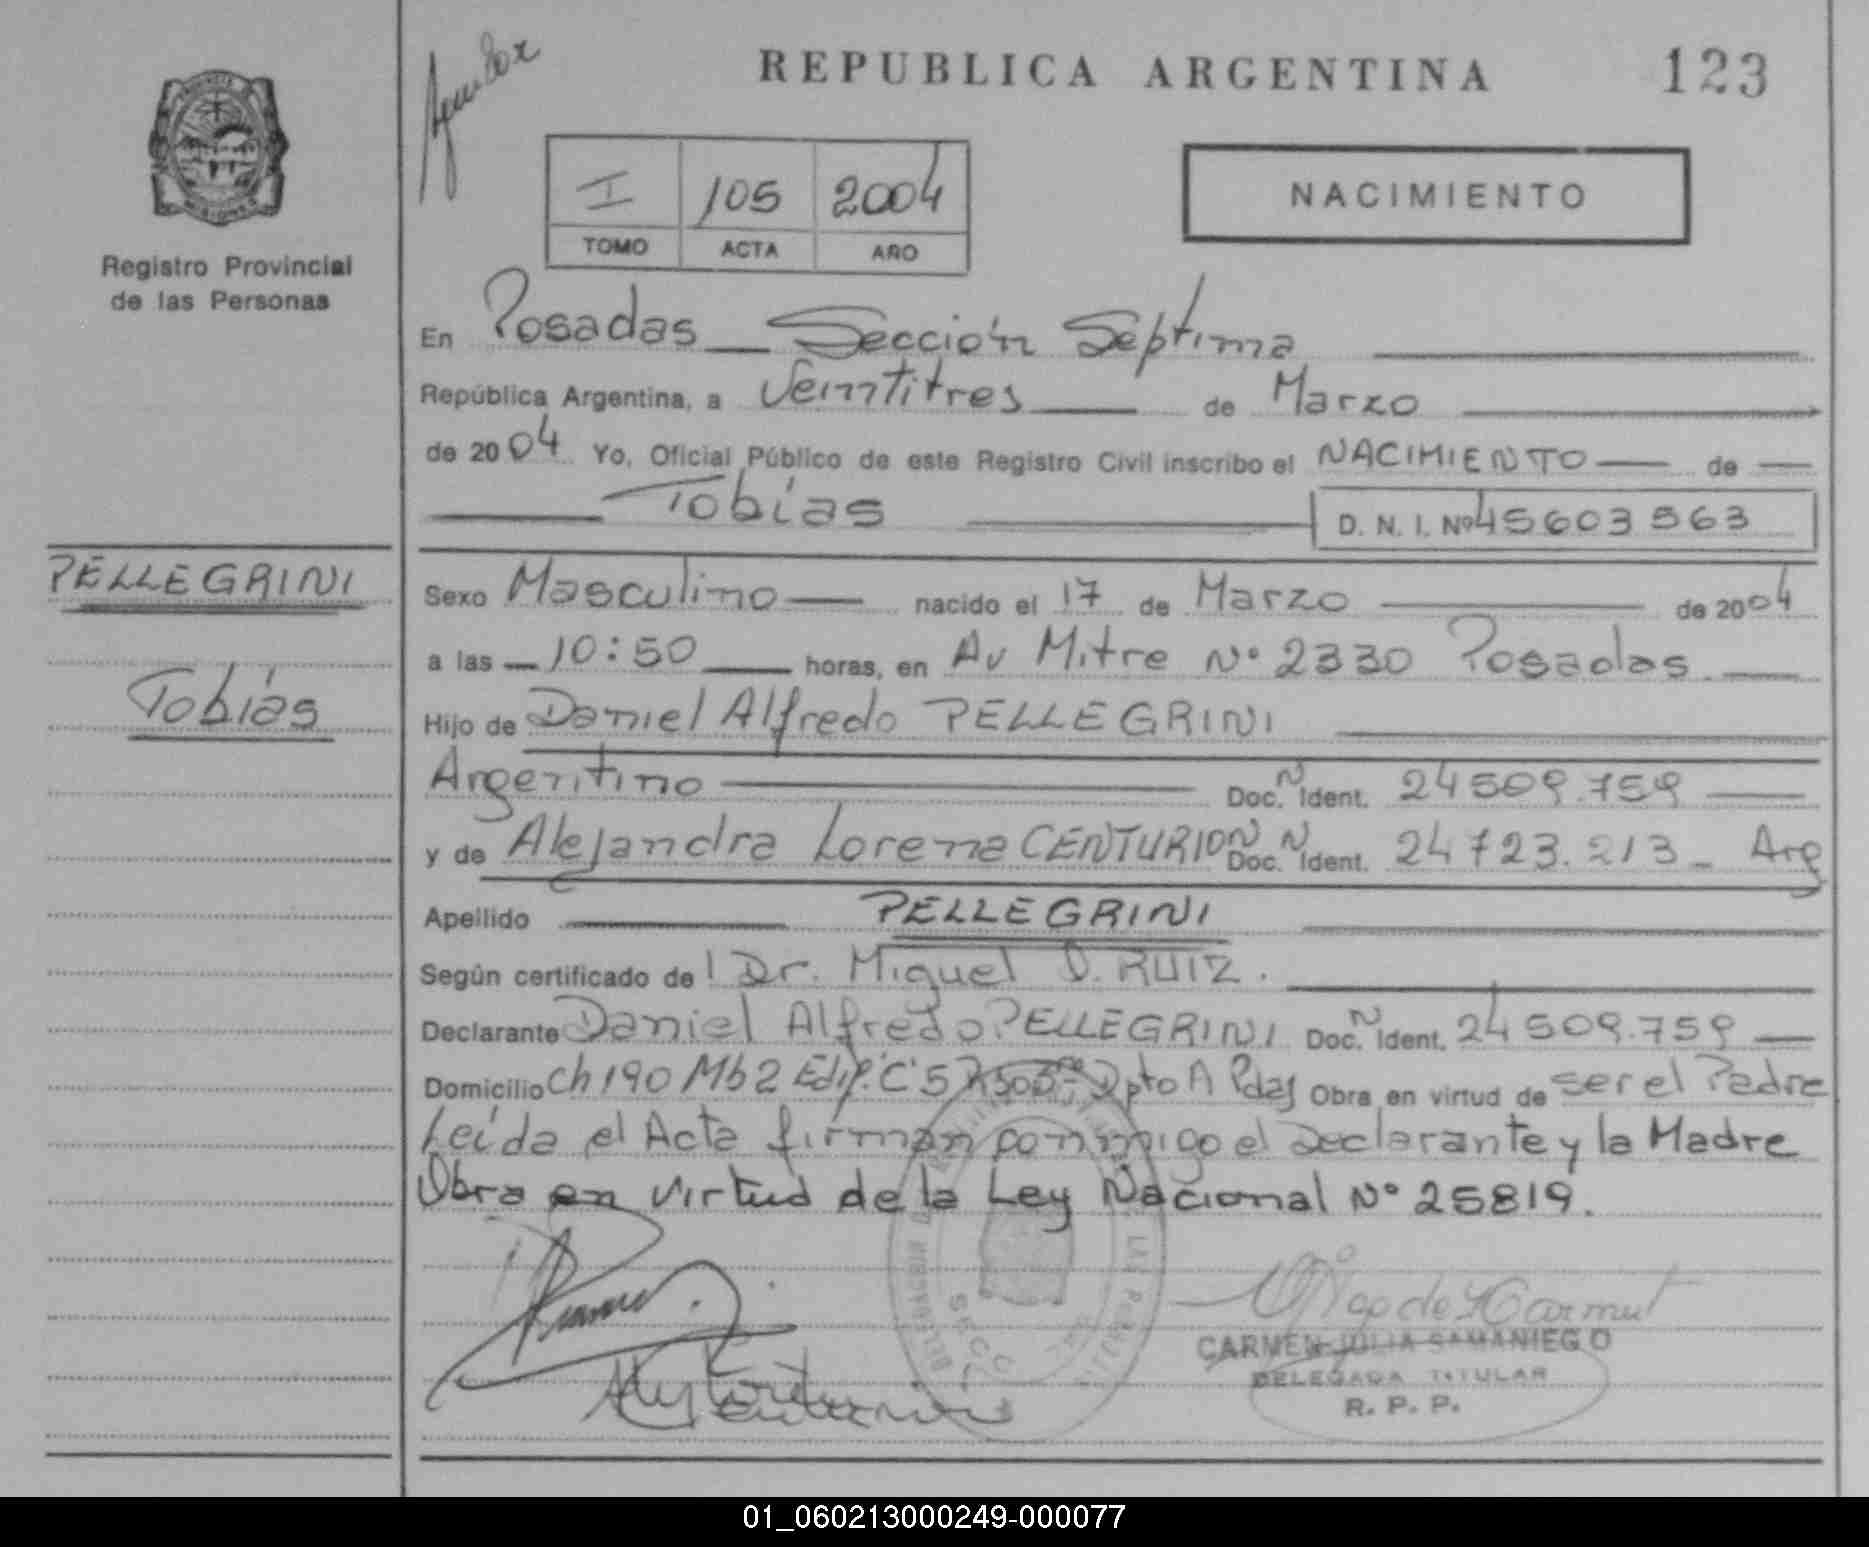 REPUBLICA ARGENTINA 123
I 105 2004
TOMO ACTA AÑO
NACIMIENTO
PROVINCIA DE MISIONES
Registro Provincial
de las Personas
En Posadas Sección Septima
República Argentina, a Veintitres de Marzo
de 2004 Yo, Oficial Público de este Registro Civil inscribo el NACIMIENTO de
Tobías D. N. I. Nº 45603563
PELLEGRINI
Tobías
Sexo Masculino nacido el 17 de Marzo de 2004
a las 10:50 horas, en Av Mitre Nº 2330 Posadas
Hijo de Daniel Alfredo PELLEGRINI
Argentino Doc. N Ident. 24509.759
y de Alejandra Lorena CENTURION Doc. N Ident. 24723.213 - Arg
Apellido PELLEGRINI
Según certificado de l Dr. Miguel D. RUIZ.
Declarante Daniel Alfredo PELLEGRINI Doc. N Ident. 24509.759
Domicilio Ch 190 Mb 2 Edif. C 5 Dpto A Pdas Obra en virtud de ser el Padre
Leída el Acta firman conmigo el Declarante y la Madre
Obra en virtud de la Ley Nacional Nº 25819.
CARMEN JULIA SAMANIEGO
DELEGADA TITULAR
R. P. P.
01_060213000249-000077